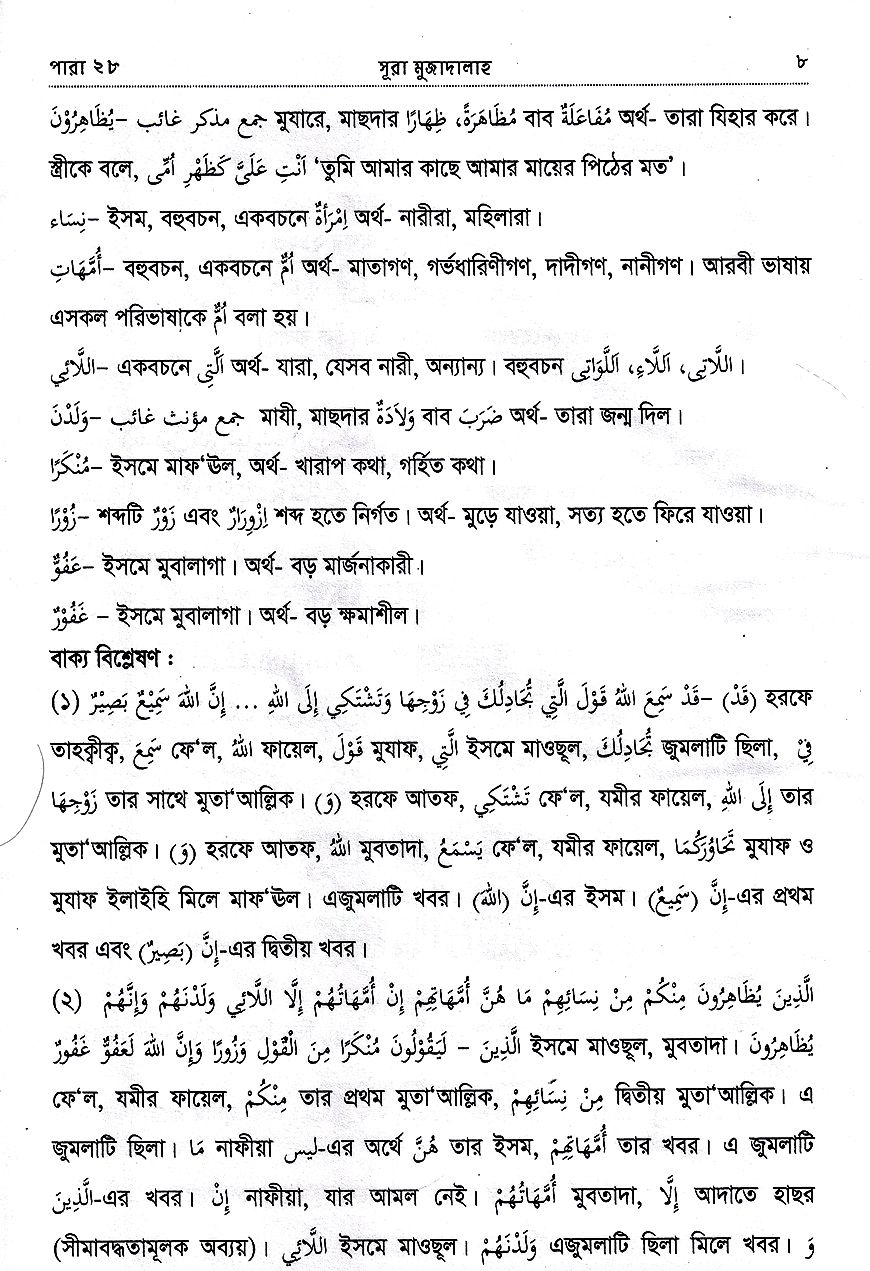 পারা ২৮ সূরা মুজাদালাহ ৮
يُظَاهِرُوْنَ– جمع مذكر غائب মুযারে, মাছদার مُظَاهَرَةً، ظِهَارًا বাব مُفَاعَلَةٌ অর্থ- তারা যিহার করে।
স্ত্রীকে বলে, اَنْتِ عَلَىَّ كَظَهْرِ اُمِّى ‘তুমি আমার কাছে আমার মায়ের পিঠের মত’।
نِسَاء– ইসম, বহুবচন, একবচনে اِمْرَأَةٌ অর্থ- নারীরা, মহিলারা।
أُمَّهَاتِ– বহুবচন, একবচনে اُمٌّ অর্থ- মাতাগণ, গর্ভধারিণীগণ, দাদীগণ, নানীগণ। আরবী ভাষায়
এসকল পরিভাষাকে اُمٌّ বলা হয়।
اللَّائِي– একবচনে الَّتِي অর্থ- যারা, যেসব নারী, অন্যান্য। বহুবচন اللَّاتِى، اَللَّاءِ، اَللَّوَاتِى।
وَلَدْنَ– جمع مؤنث غائب মাযী, মাছদার وِلَادَةٌ বাব ضَرَبَ অর্থ- তারা জন্ম দিল।
مُنْكَرًا– ইসমে মাফ‘ঊল, অর্থ- খারাপ কথা, গর্হিত কথা।
زُوْرًا– শব্দটি زَوْرٌ এবং اِزْوِرَارٌ শব্দ হতে নির্গত। অর্থ- মুড়ে যাওয়া, সত্য হতে ফিরে যাওয়া।
عَفُوٌّ– ইসমে মুবালাগা। অর্থ- বড় মার্জনাকারী।
غَفُوْرٌ – ইসমে মুবালাগা। অর্থ- বড় ক্ষমাশীল।
বাক্য বিশ্লেষণ :
(১) قَدْ سَمِعَ اللهُ قَوْلَ الَّتِي تُجَادِلُكَ فِي زَوْجِهَا وَتَشْتَكِي إِلَى اللهِ ... إِنَّ اللهَ سَمِيْعٌ بَصِيْرٌ– (قَدْ) হরফে
তাহক্বীক্ব, سَمِعَ ফে‘ল, اللهُ ফায়েল, قَوْلَ মুযাফ, الَّتِي ইসমে মাওছূল, تُجَادِلُكَ জুমলাটি ছিলা, فِيْ
زَوْجِهَا তার সাথে মুতা‘আল্লিক। (وَ) হরফে আতফ, تَشْتَكِي ফে‘ল, যমীর ফায়েল, إِلَى اللهِ তার
মুতা‘আল্লিক। (وَ) হরফে আতফ, اللهُ মুবতাদা, يَسْمَعُ ফে‘ল, যমীর ফায়েল, تَحَاوُرَكُمَا মুযাফ ও
মুযাফ ইলাইহি মিলে মাফ‘ঊল। এজুমলাটি খবর। (اللهَ) إِنَّ-এর ইসম। (سَمِيعٌ) إِنَّ-এর প্রথম
খবর এবং (بَصِيرٌ) إِنَّ-এর দ্বিতীয় খবর।
(২) الَّذِينَ يُظَاهِرُونَ مِنْكُمْ مِنْ نِسَائِهِمْ مَا هُنَّ أُمَّهَاتِهِمْ إِنْ أُمَّهَاتُهُمْ إِلَّا اللَّائِي وَلَدْنَهُمْ وَإِنَّهُمْ
لَيَقُوْلُونَ مُنْكَرًا مِنَ الْقَوْلِ وَزُورًا وَإِنَّ اللهَ لَعَفُوٌّ غَفُورٌ – الَّذِينَ ইসমে মাওছূল, মুবতাদা। يُظَاهِرُونَ
ফে‘ল, যমীর ফায়েল, مِنْكُمْ তার প্রথম মুতা‘আল্লিক, مِنْ نِسَائِهِمْ দ্বিতীয় মুতা‘আল্লিক। এ
জুমলাটি ছিলা। مَا নাফীয়া لَيس-এর অর্থে هُنَّ তার ইসম, أُمَّهَاتِهِمْ তার খবর। এ জুমলাটি
الَّذِينَ-এর খবর। إِنْ নাফীয়া, যার আমল নেই। أُمَّهَاتُهُمْ মুবতাদা, إِلَّا আদাতে হাছর
(সীমাবদ্ধতামূলক অব্যয়)। اللَّائِي ইসমে মাওছূল। وَلَدْنَهُمْ এজুমলাটি ছিলা মিলে খবর। وَ